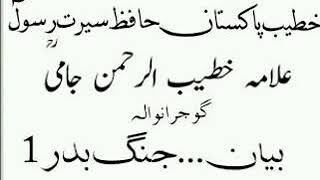 خطیب پاکستان حافظ سیرت رسولؐ
علامہ خطیب الرحمن جامیؒ
گوجرانوالہ
بیان...جنگ بدر 1